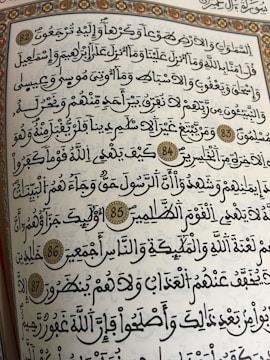 سورة ءال عمران
السموات والارض طوعا وكرها وإليه ترجعون 82
قل امنا بالله وما أنزل علينا وما أنزل على إبرهيم وإسمعيل
وإسحق ويعقوب والاسباط وما أوتي موسى وعيسى
والنبيئون من ربهم لا نفرق بين أحد منهم ونحن له
مسلمون 83 ومن يبتغ غير الاسلم دينا فلن يقبل منه وهو
الاخرة من الخسرين 84 كيف يهدي الله قوما كفروا
إيمنهم وشهدوا أن الرسول حق وجاءهم البينت
لا يهدي القوم الظلمين 85 أولئك جزاؤهم أن
لعنة الله والملئكة والناس أجمعين 86 خلدين
لا يخفف عنهم العذاب ولا هم ينظرون 87 إلا
من بعد ذلك وأصلحوا فإن الله غفور رحيم